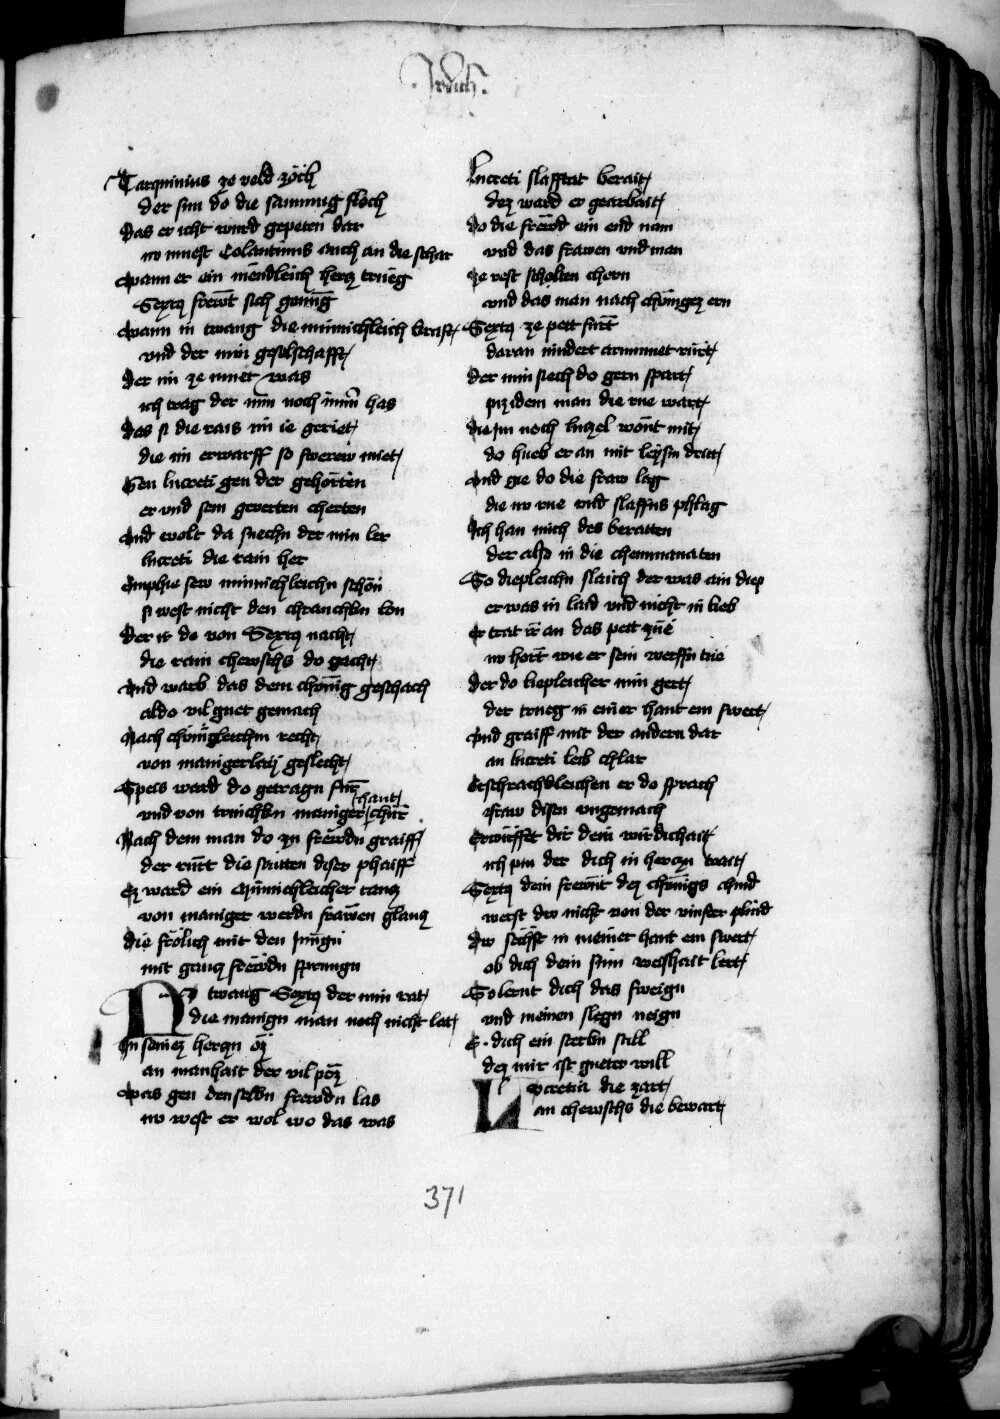 Judith
Tarquinius ze veld zöch
der sun do die samnug floch
Das er icht wurd gepeten dar
nv muest Colantinus auch an die schar
wann er ein mendleich hercz trueg
Sextus frewt sich genug
wann in twang die minnichleich kraft
vnd der min geselschafft
Der im ze muet was
ich trag der min noch immer has
Das si die rais im ie geriet
die im erwarff so swerew miet
Gen lucreti gen der gehorten
er vnd sein geverten cherten
vnd wolt da suechn der min ler
lucreti die rain her
Emphie sew minnichleichn schon
si west nicht den chranchkn lon
Der ir do von Sextus nacht
die rain chewschs do gacht
vnd warb das dem chönig geschach
aldo vil guet gemach
Nach chönigleichm recht
von manigerlaij geslecht
Speis ward do getragn für
chant
vnd von trinchkn maniger chür
Nach dem man do zu frewdn graiff
der rurt die saitten diser phaiff
Ez ward ein minnichleicher tancz
von maniger werdn frawen glancz
die frölich mit den jungn
mit gancz frewdn sprungn
Do twang Sextus der min rat
die manign man noch nicht lat
In seinez herczn öz
an manhait der vil pöz
was gen denselbn frewdn las
nv west er wol wo das was
Lucreti slaffstat berait
dez ward er gearbait
do die frewd ein end nam
vnd das frawen vnd man
ze rest scholten chern
vnd das man nach chönigez ern
Sextus ze pett fürt
daran nindert armmuet rürt
der min siech do gern spart
piz idem man die rue wart
die im noch luczel wont mit
do hueb er an mit leysin dritt
vnd gie do die fraw lag
die nv rue vnd slaffns phlag
Ich han mich des beratten
der also in die chemmanaten
So diepleichn slaich der was ain diep
er was in laid vnd nicht in lieb
er trat ir an das pett zue
nv hort wie er sein werffn tue
der do liepleicher min gert
der trueg in einer hant ein swert
vnd graiff mit der andern dar
an lucreti leib chlar
Eschrachdleichen er do sprach
fraw disen vngemach
Erwürffet dir dein wirdichait
ich pin der dich in herczn trait
Sextus dein frewnt dez chönigs chind
werst dw nicht von der vinster plind
dw sechst in meiner hant ein swert
ob dich dein sinn weishait lert
So lernt dich das sweign
vnd meinen slegn neign
E dich ein sterbn still
dez mir ist gueter will
Lucretia die zart
an chewschs die bewart
371